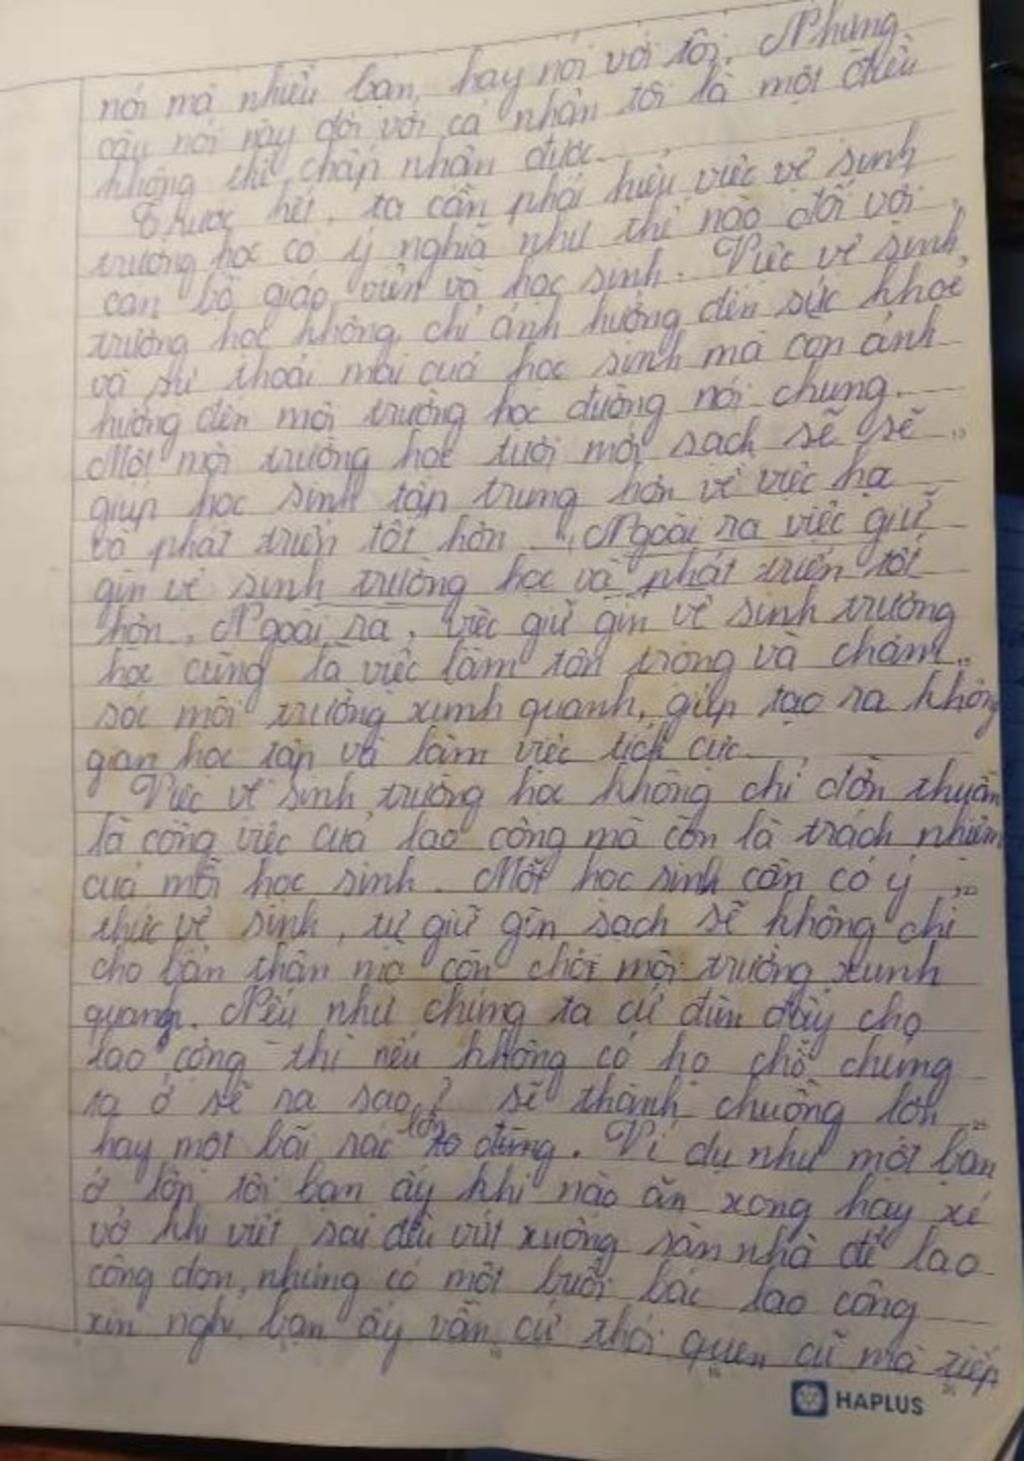 nói mà nhiều bạn hay nói với tôi. Nhưng
câu nói này đối với cá nhân tôi là một điều
không thể chấp nhận được.
Trước hết, ta cần phải hiểu việc vệ sinh
trường học có ý nghĩa như thế nào đối với
cán bộ giáo viên và học sinh. Việc vệ sinh
trường học không chỉ ảnh hưởng đến sức khoẻ
và sự thoải mái của học sinh mà còn ảnh
hưởng đến môi trường học đường nói chung.
Một môi trường học tươi mới sạch sẽ sẽ
giúp học sinh tập trung hơn về việc họ
và phát triển tốt hơn. Ngoài ra việc giữ
gìn vệ sinh trường học và phát triển tốt
hơn. Ngoài ra, việc giữ gìn vệ sinh trường
học cũng là việc làm tôn trọng và chăm
sóc môi trường xunh quanh, giúp tạo ra không
gian học tập và làm việc tích cực.
Việc vệ sinh trường học không chỉ đơn thuần
là công việc của lao công mà còn là trách nhiệm
của mỗi học sinh. Mỗi học sinh cần có ý
thức vệ sinh, tự giữ gìn sạch sẽ không chỉ
cho bản thân mà còn cho môi trường xunh
quang. Nếu như chúng ta cứ đùn đẩy cho
lao công thì nếu không có họ chỗ chúng
ta ở sẽ ra sao? sẽ thành chuồng lợn
hay một bãi rác lớn to đùng. Ví dụ như một bạn
ở lớp tôi bạn ấy khi nào ăn xong hay xé
vở khi viết sai đều vứt xuống sàn nhà để lao
công dọn, nhưng có một buổi bác lao công
xin nghỉ bạn ấy vẫn cứ thói quen cũ mà tiếp
HAPLUS